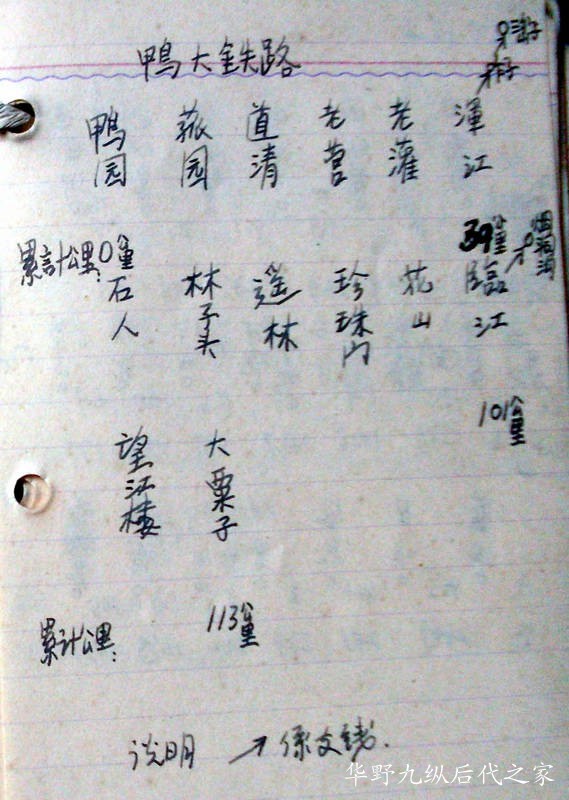 鴨大鉄路
鴨园 菰园 道清 老营 老灌 渾江
累計公里:0公里 39公里
石人 林子头 遥林 珍珠门 花山 臨江
101公里
望江楼 大栗子
累计公里: 113公里
说明 ↗係支线.
华野九纵后代之家